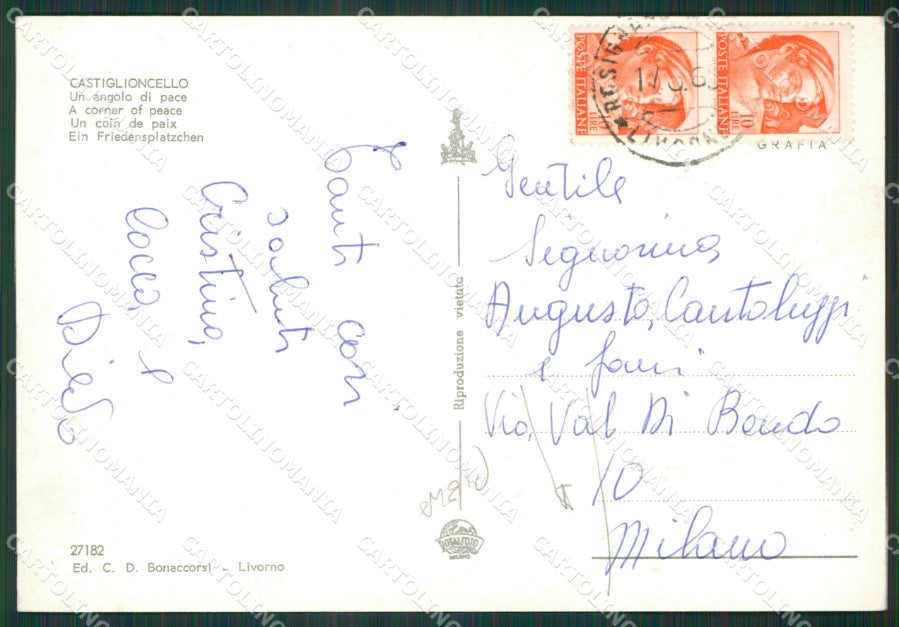 CASTIGLIONCELLO
Un angolo di pace
A corner of peace
Un coin de paix
Ein Friedensplatzchen
Tanti cari
saluti
Cristina,
Diego
27182
Ed. C. D. Bonaccorsi - Livorno
Riproduzione vietata
POSTE ITALIANE
LIRE
POSTE ITALIANE
10 LIRE
GRAFIA
Gentile
Signorina
Augusta, Cantaluppi
e fam.
Via, Val Di Bondo
10
Milano
ROTALFOTO
MILANO
CARTOLINOMANIA